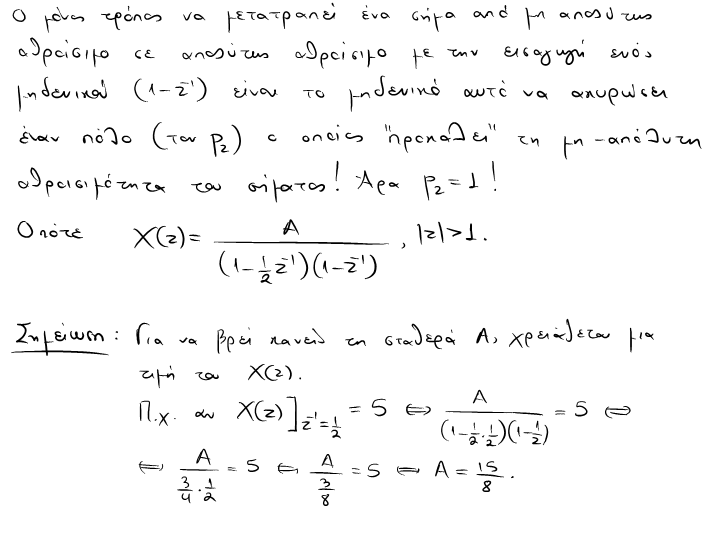 Ο μόνος τρόπος να μετατραπεί ένα σήμα από μη απολύτως
αθροίσιμο σε απολύτως αθροίσιμο με την εισαγωγή ενός
μηδενικού (1-z⁻¹) είναι το μηδενικό αυτό να ακυρώσει
έναν πόλο (τον p₂) ο οποίος "προκαλεί" τη μη-απόλυτη
αθροισιμότητα του σήματος! Άρα p₂ = 1!
Οπότε X(z) = A / ((1-½z⁻¹)(1-z⁻¹)), |z|>1.
Σημείωση: Για να βρει κανείς τη σταθερά A, χρειάζεται μια
τιμή του X(z).
Π.χ. αν X(z)]_{z⁻¹=½} = 5 ⇔ A / ((1-½·½)(1-½)) = 5 ⇔
⇔ A / (¾·½) = 5 ⇔ A / (3/8) = 5 ⇔ A = 15/8.